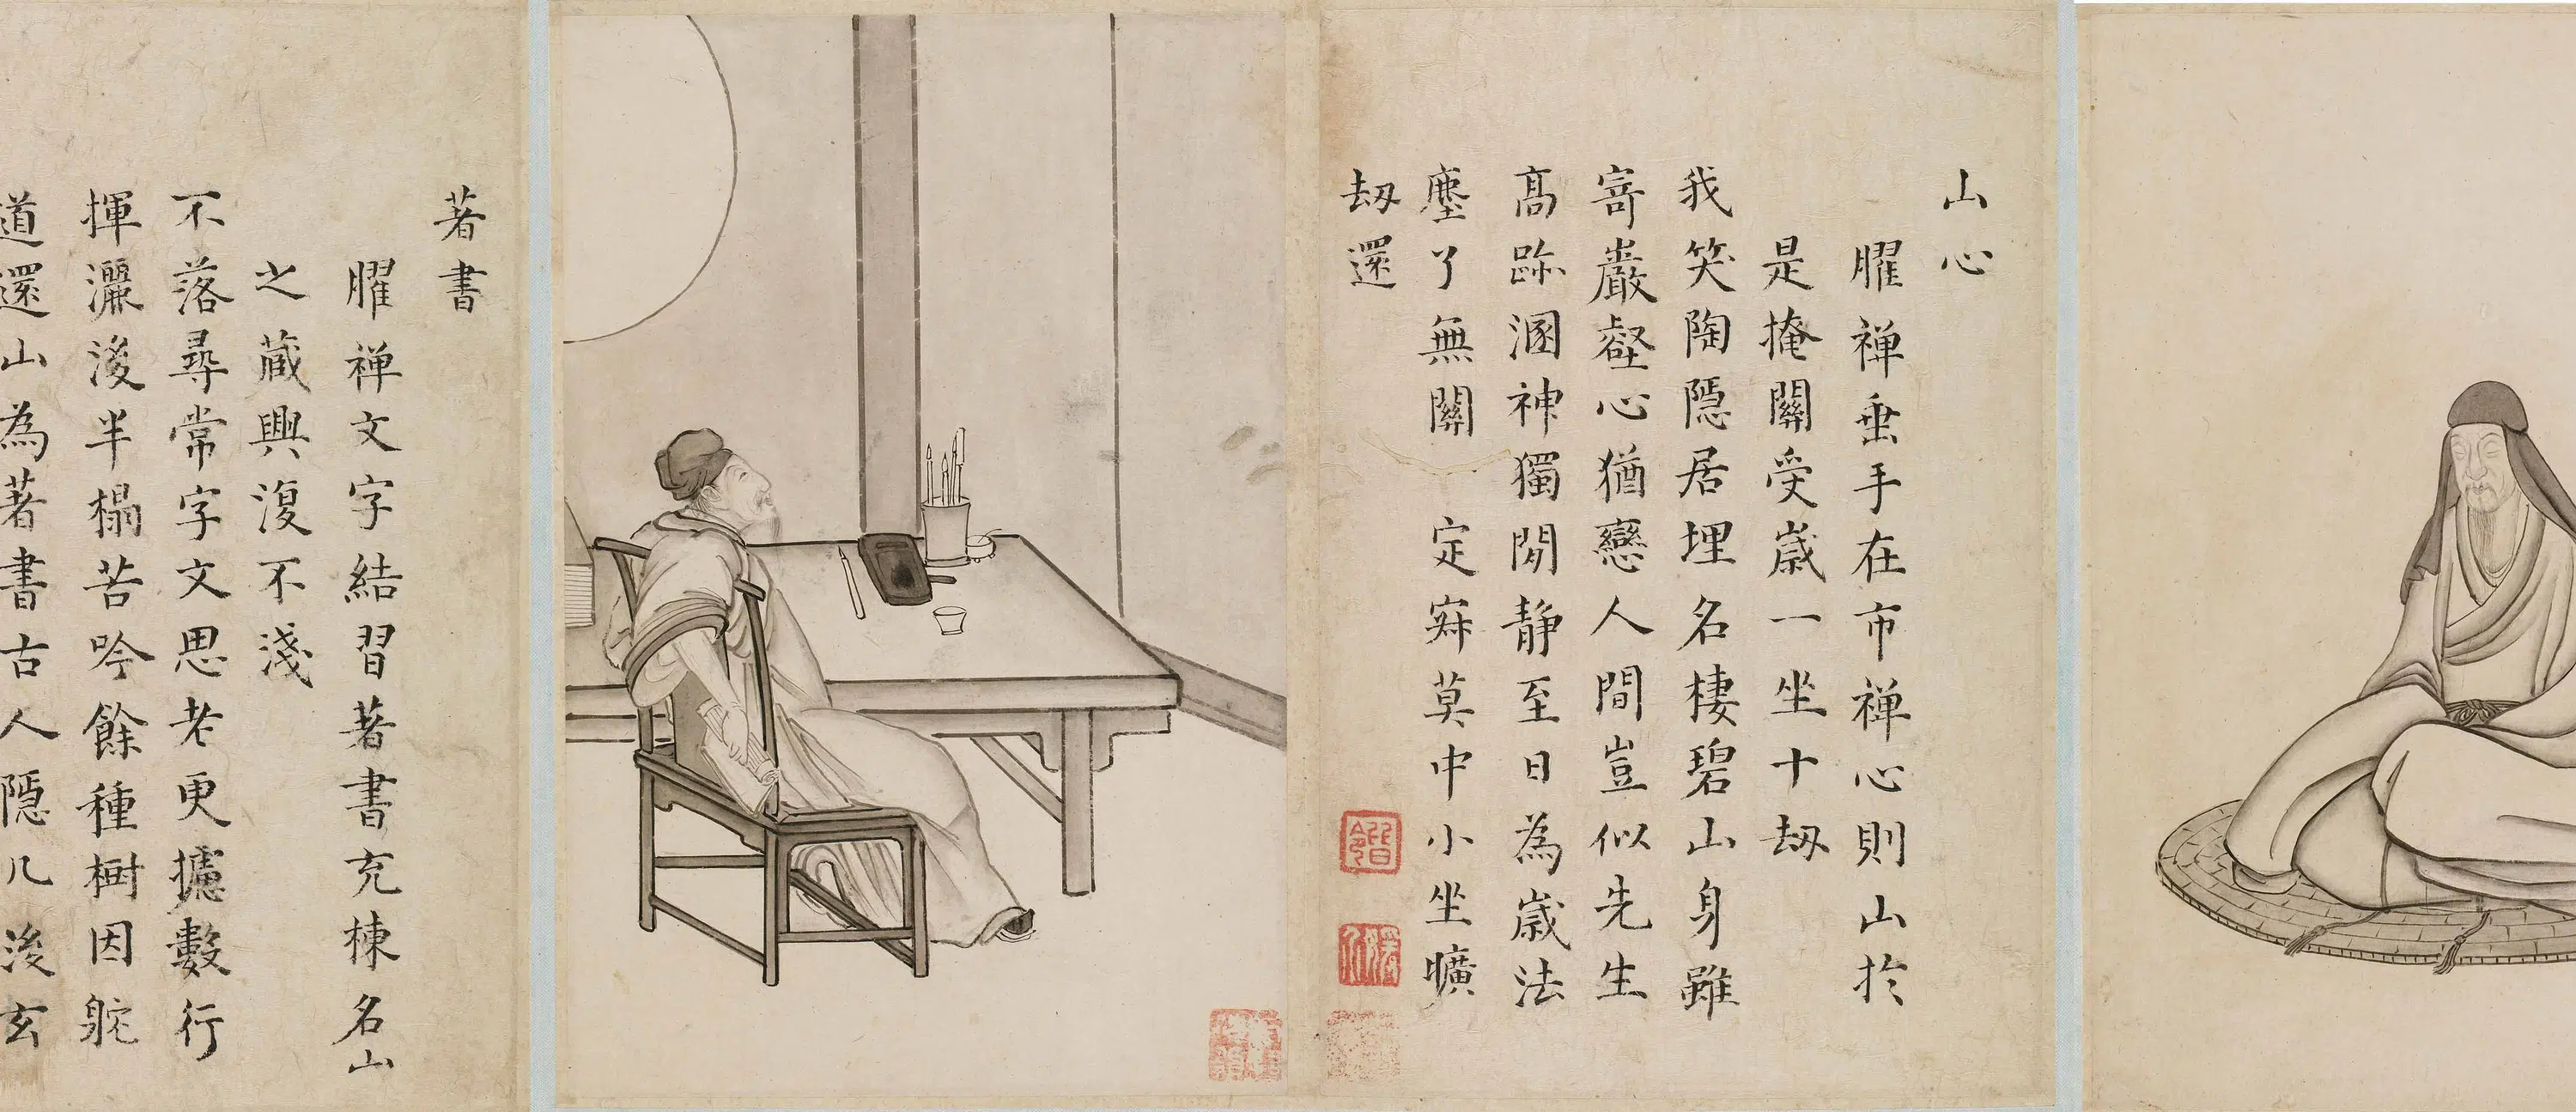 山心
臞禪垂手在市禪心則山於
是掩關受歲一坐十劫
我笑陶隱居埋名棲碧山身雖
寄巖壑心猶戀人間豈似先生
高跡溷神獨閒靜至日為歲法
塵了無關一定寂莫中小坐曠
劫還
著書
臞禪文字結習著書充棟名山
之藏興復不淺
不落尋常字文思老更攄數行
揮灑後半榻苦吟餘種樹因舵
道還山為著書古人隱几後玄